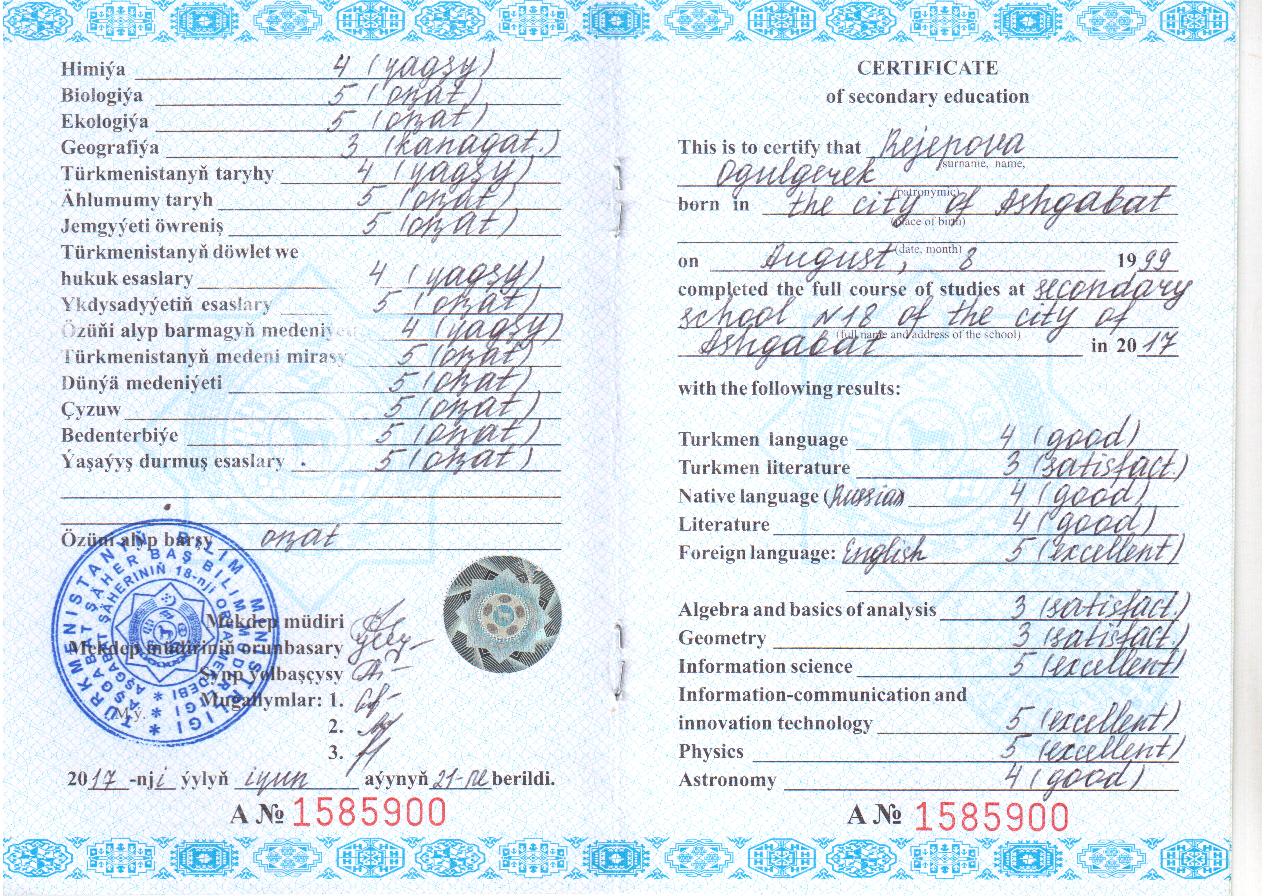 Himiýa 4 (ýagşy)
Biologiýa 5 (oňat)
Ekologiýa 5 (oňat)
Geografiýa 3 (kanagat.)
Türkmenistanyň taryhy 4 (ýagşy)
Ählumumy taryh 5 (oňat)
Jemgyýeti öwreniş 5 (oňat)
Türkmenistanyň döwlet we
hukuk esaslary 4 (ýagşy)
Ykdysadyýetiň esaslary 5 (oňat)
Özüňi alyp barmagyň medeniýeti 4 (ýagşy)
Türkmenistanyň medeni mirasy 5 (oňat)
Dünýä medeniýeti 5 (oňat)
Çyzuw 5 (oňat)
Bedenterbiýe 5 (oňat)
Ýaşaýyş durmuş esaslary 5 (oňat)
Özüni alyp barşy oňat
TÜRKMENISTANYŇ BILIM MINISTRLIGI
AŞGABAT ŞÄHER BAŞ BILIM MÜDIRLIGI
AŞGABAT ŞÄHERINIŇ 18-nji ORTA MEKDEBI
Mekdep müdiri
Mekdep müdiriniň orunbasary
Synp ýolbaşçysy
Mugallymlar: 1.
M.ý.
2.
3.
2017-nji ýylyň iýun aýynyň 21-ne berildi.
A № 1585900
CERTIFICATE
of secondary education
This is to certify that Rejepova
(surname, name,
Ogulgerek
patronymic)
born in the city of Ashgabat
(place of birth)
(date, month)
on August, 8 1999
completed the full course of studies at secondary
school N18 of the city of
(full name and address of the school)
Ashgabat in 2017
with the following results:
Turkmen language 4 (good)
Turkmen literature 3 (satisfact.)
Native language (Russian) 4 (good)
Literature 4 (good)
Foreign language: English 5 (excellent)
Algebra and basics of analysis 3 (satisfact.)
Geometry 3 (satisfact.)
Information science 5 (excellent)
Information-communication and
innovation technology 5 (excellent)
Physics 5 (excellent)
Astronomy 4 (good)
A № 1585900